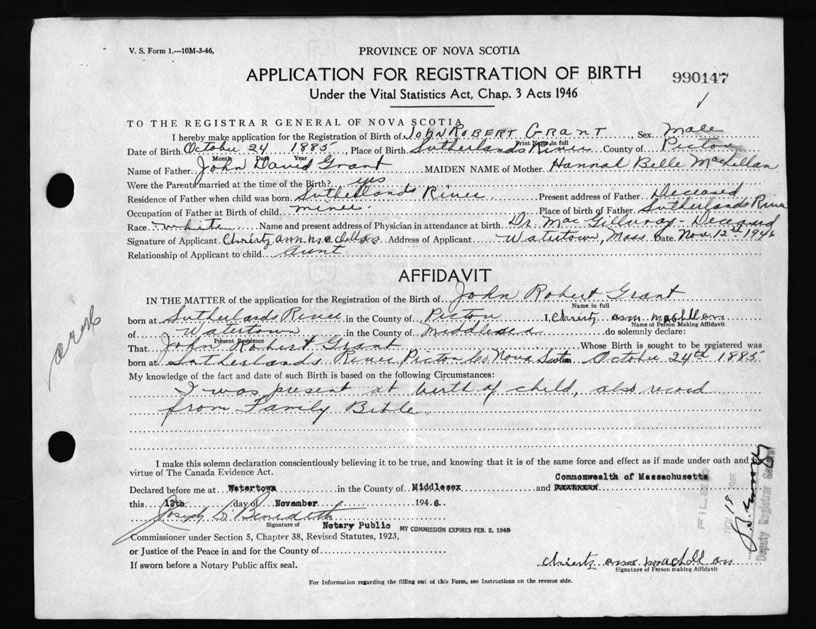 V. S. Form 1.—10M-3-46,
PROVINCE OF NOVA SCOTIA
APPLICATION FOR REGISTRATION OF BIRTH
990147
Under the Vital Statistics Act, Chap. 3 Acts 1946
TO THE REGISTRAR GENERAL OF NOVA SCOTIA
I hereby make application for the Registration of Birth of JOHN ROBERT GRANT, Sex Male
Print Name in full
Date of Birth October 24 1885, Place of Birth Sutherlands River County of Pictou
Month Date Year
Name of Father John David Grant MAIDEN NAME of Mother Hannah Belle MacLellan
Were the Parents married at the time of the Birth? yes
Residence of Father when child was born Sutherlands River Present address of Father Deceased
Occupation of Father at Birth of child miner Place of birth of Father Sutherlands River
Race white Name and present address of Physician in attendance at birth Dr. MacGillvray - Deceased
Signature of Applicant Christy Ann Address of Applicant Watertown, Mass. Date Nov. 12th 1946
Relationship of Applicant to child aunt
AFFIDAVIT
IN THE MATTER of the application for the Registration of the Birth of John Robert Grant
Name in full
born at Sutherlands River in the County of Pictou I, Christy Ann
Name of Person Making Affidavit
of Watertown in the County of Middlesex do solemnly declare:
Present Residence
That John Robert Grant Whose Birth is sought to be registered was
born at Sutherlands River, Pictou Co Nova Scotia October 24th 1885
My knowledge of the fact and date of such Birth is based on the following Circumstances:
I was present at birth of child, also record
from Family Bible
I make this solemn declaration conscientiously believing it to be true, and knowing that it is of the same force and effect as if made under oath and by
virtue of The Canada Evidence Act.
Commonwealth of Massachusetts
Declared before me at Watertown in the County of Middlesex and
this 12th day of November 1946.
Joseph Benedith
Signature of Notary Public MY COMMISSION EXPIRES FEB. 5, 1948
Commissioner under Section 5, Chapter 38, Revised Statutes, 1923,
or Justice of the Peace in and for the County of
If sworn before a Notary Public affix seal.
Signature of Person making Affidavit
For Information regarding the filling out of this Form, see Instructions on the reverse side.
FILED
Deputy Registrar General